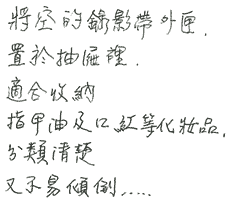 將空的錄影帶外匣.
置於抽屜裡.
適合收納
指甲油及口紅等化妝品.
分類清楚
又不易傾倒.....